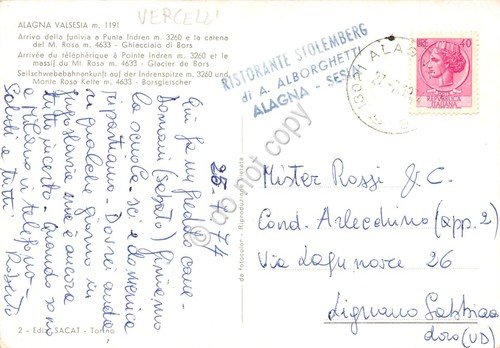 VERCELLI
ALAGNA VALSESIA m. 1191
Arrivo della funivia a Punta Indren m. 3260 e la catena
del M. Rosa m. 4633 - Ghiacciaio di Bors
Arrivée du téléphérique à Pointe Indren m. 3260 et le
massif du Mt. Rosa m. 4633 - Glacier de Bors
Seilschwebebahnenkunft auf der Indrenspitze m. 3260 und
Monte Rosa Kette m. 4633 - Borsgleischer
RISTORANTE STOLEMBERG
di A. ALBORGHETTI
ALAGNA - SESIA
LIRE 40
REPUBBLICA
ITALIANA
25-1-74
Qui fa un freddo cane -
Domani (sabato) finiamo
la scuola sci e domenica
ripartiamo - Dovrei andare
in qualche giorno in
Jugoslavia ma è ancora
tutto incerto - Quando sono
a Milano vi telefono -
Saluti a tutti Roberto
Mister Rossi & C.
Cond. Arlecchino (app. 2)
Via Lagunare 26
Lignano Sabbia
doro (UD)
2 - Ediz. SACAT - Torino
da fotocolor - Riproduzione vietata
do not copy